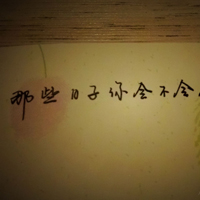 那些日子你会不会